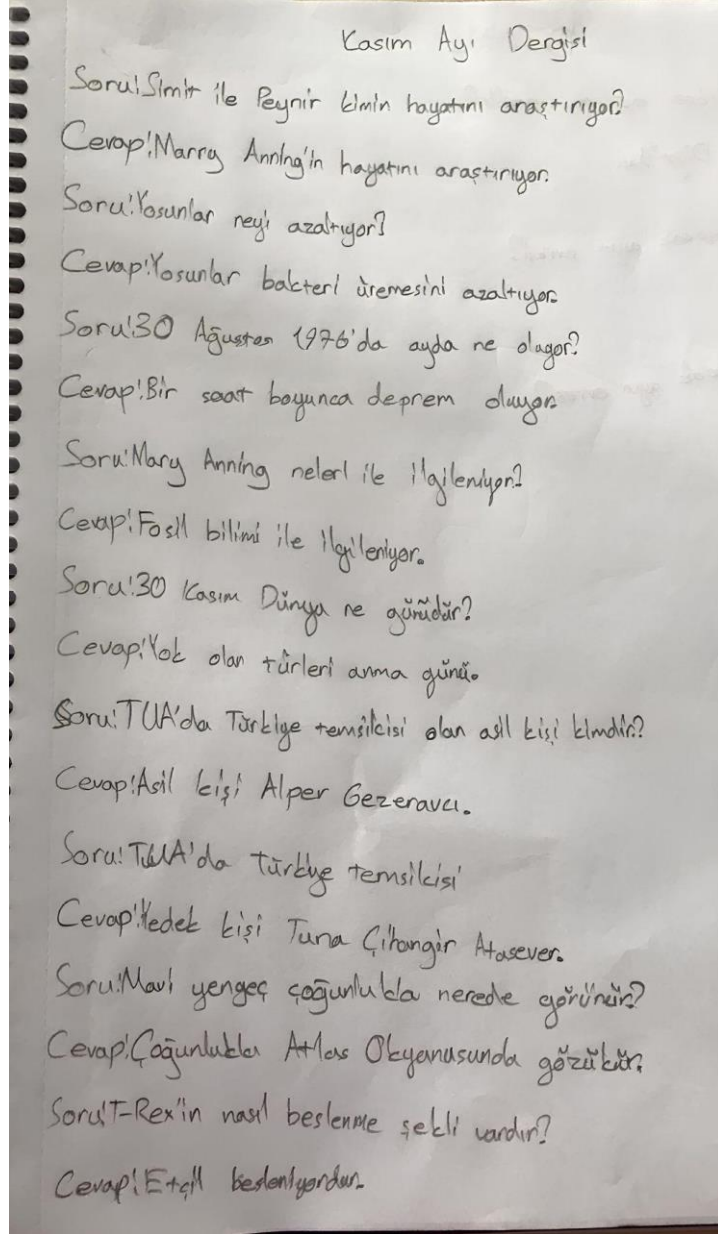 Kasım Ayı Dergisi
Soru: Simit ile Peynir kimin hayatını araştırıyor?
Cevap: Marry Anning'in hayatını araştırıyor.
Soru: Yosunlar neyi azaltıyor?
Cevap: Yosunlar bakteri üremesini azaltıyor.
Soru: 30 Ağustos 1976'da ayda ne oluyor?
Cevap: Bir saat boyunca deprem oluyor.
Soru: Mary Anning neleri ile ilgileniyor?
Cevap: Fosil bilimi ile ilgileniyor.
Soru: 30 Kasım Dünya ne günüdür?
Cevap: Yok olan türleri anma günü.
Soru: TUA'da Türkiye temsilcisi olan asil kişi kimdir?
Cevap: Asil kişi Alper Gezeravcı.
Soru: TUA'da Türkiye temsilcisi
Cevap: Yedek kişi Tuna Çihangir Atasever.
Soru: Mavi yengeç çoğunlukla nerede görünür?
Cevap: Çoğunlukla Atlas Okyanusunda gözükür.
Soru: T-Rex'in nasıl beslenme şekli vardır?
Cevap: Etçil besleniyordur.